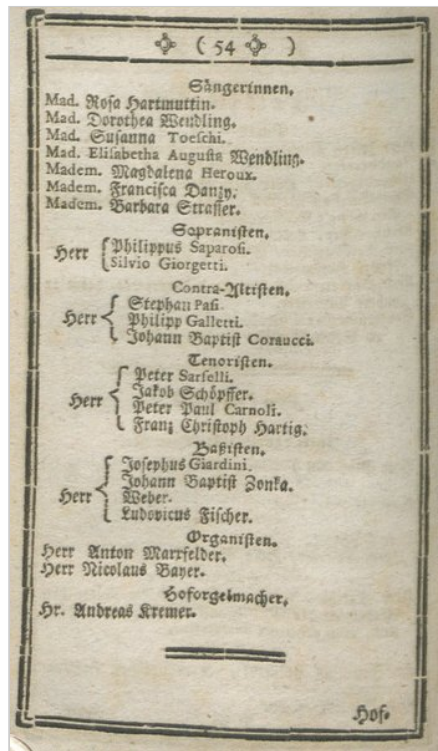 ( 54 )
Sängerinnen.
Mad. Rosa Hartmuttin.
Mad. Dorothea Wendling.
Mad. Susanna Toeschi.
Mad. Elisabetha Augusta Wendling.
Madem. Magdalena Heroux.
Madem. Francisca Danzy.
Madem. Barbara Strasser.
Sopranisten.
Herr { Philippus Saparosi.
Silvio Giorgetti.
Contra-Altisten.
Stephan Pasi
Herr { Philipp Galletti.
Johann Baptist Coraucci.
Tenoristen.
Peter Sarselli.
Herr { Jakob Schöpffer.
Peter Paul Carnoli.
Franz Christoph Hartig.
Baßisten.
Josephus Giardini.
Johann Baptist Zonka.
Herr { Weber.
Ludovicus Fischer.
Organisten.
Herr Anton Marxfelder.
Herr Nicolaus Bayer.
Hoforgelmacher.
Hr. Andreas Kremer.
Hof-